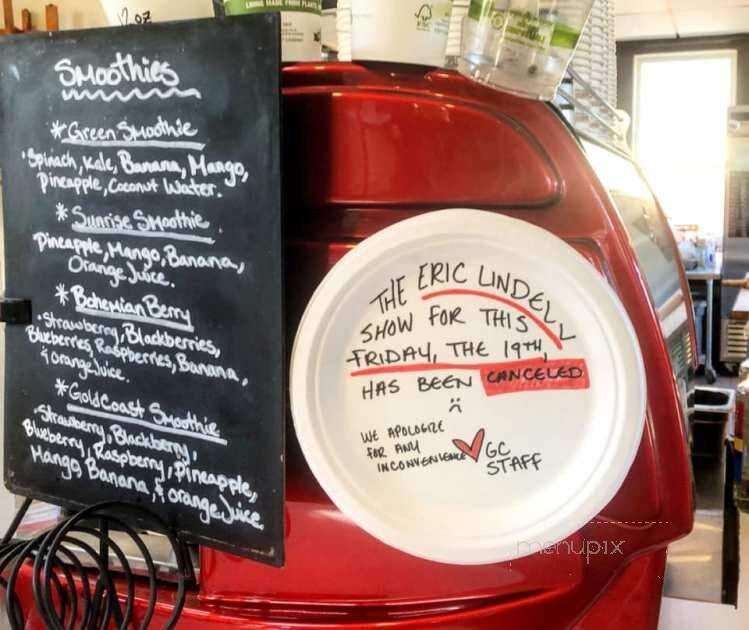 12oz
MADE FROM PLANTS
FSC
SMoothies
*Green Smoothie
·Spinach, Kale, Banana, Mango,
Pineapple, Coconut Water.
*Sunrise Smoothie
Pineapple, Mango, Banana,
Orange Juice.
*Bohemian Berry
·Strawberry, Blackberries,
Blueberries, Raspberries, Banana,
& orange Juice.
*Gold Coast Smoothie
·Strawberry, Blackberry,
Blueberry, Raspberry, Pineapple,
Mango, Banana, & orange Juice.
THE ERIC LINDELL
SHOW FOR THIS
FRIDAY, THE 19TH,
HAS BEEN CANCELED
:(
WE APOLOGIZE
FOR ANY
INCONVENIENCE
♥ GC
STAFF
menupix